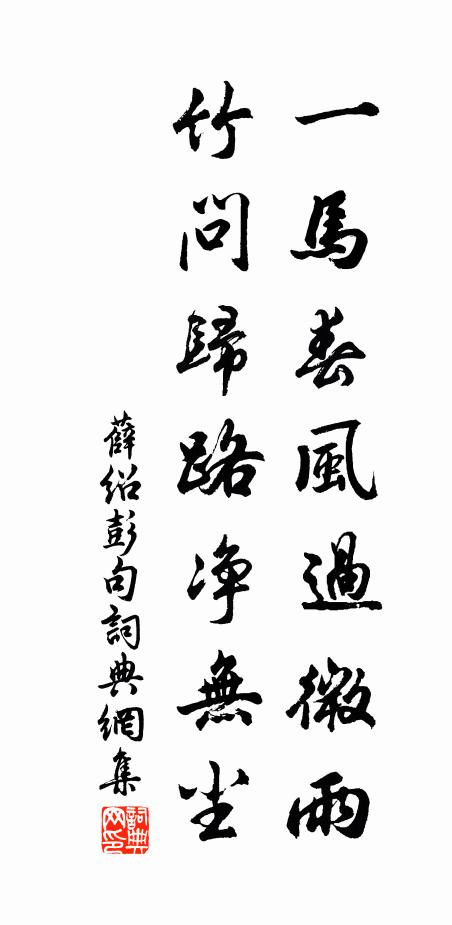 一馬春風過微雨
竹問歸路净無尘
薛紹彭句詞典網集
詞典
网印